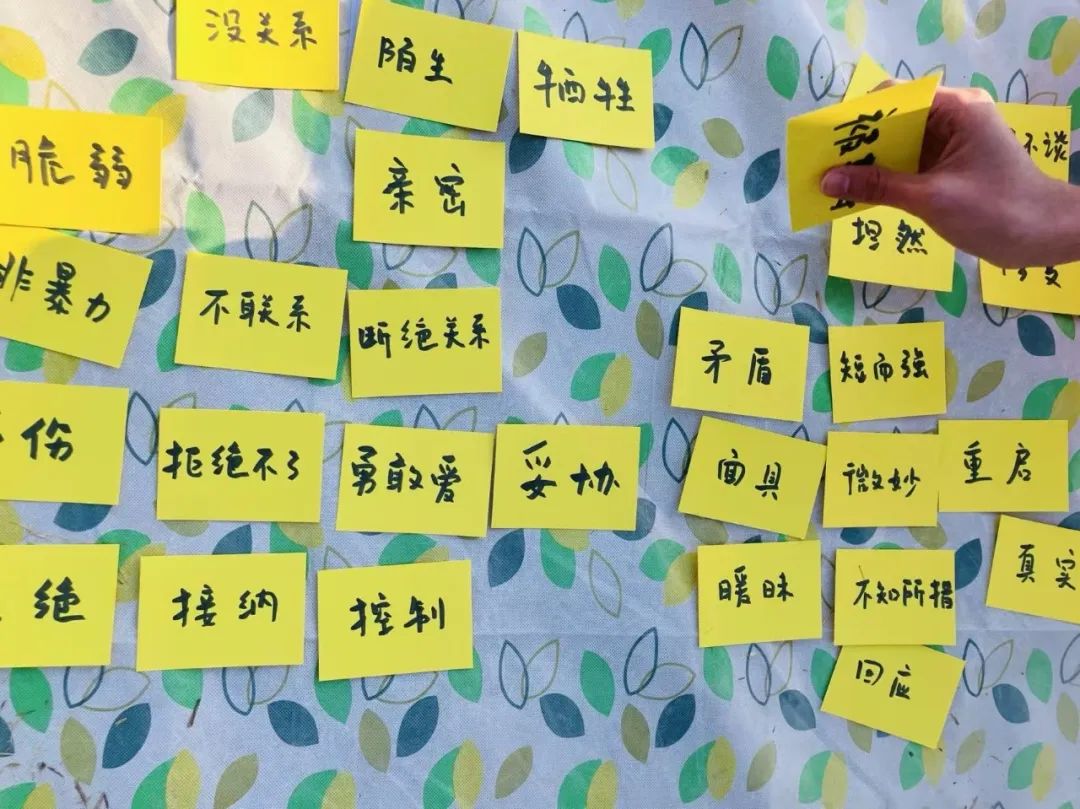 没关系
陌生
牺牲
脆弱
亲密
坦然
不谈
非暴力
不联系
断绝关系
矛盾
短而强
伤
拒绝不了
勇敢爱
妥协
面具
微妙
重启
绝
接纳
控制
暖昧
不知所措
真实
回应